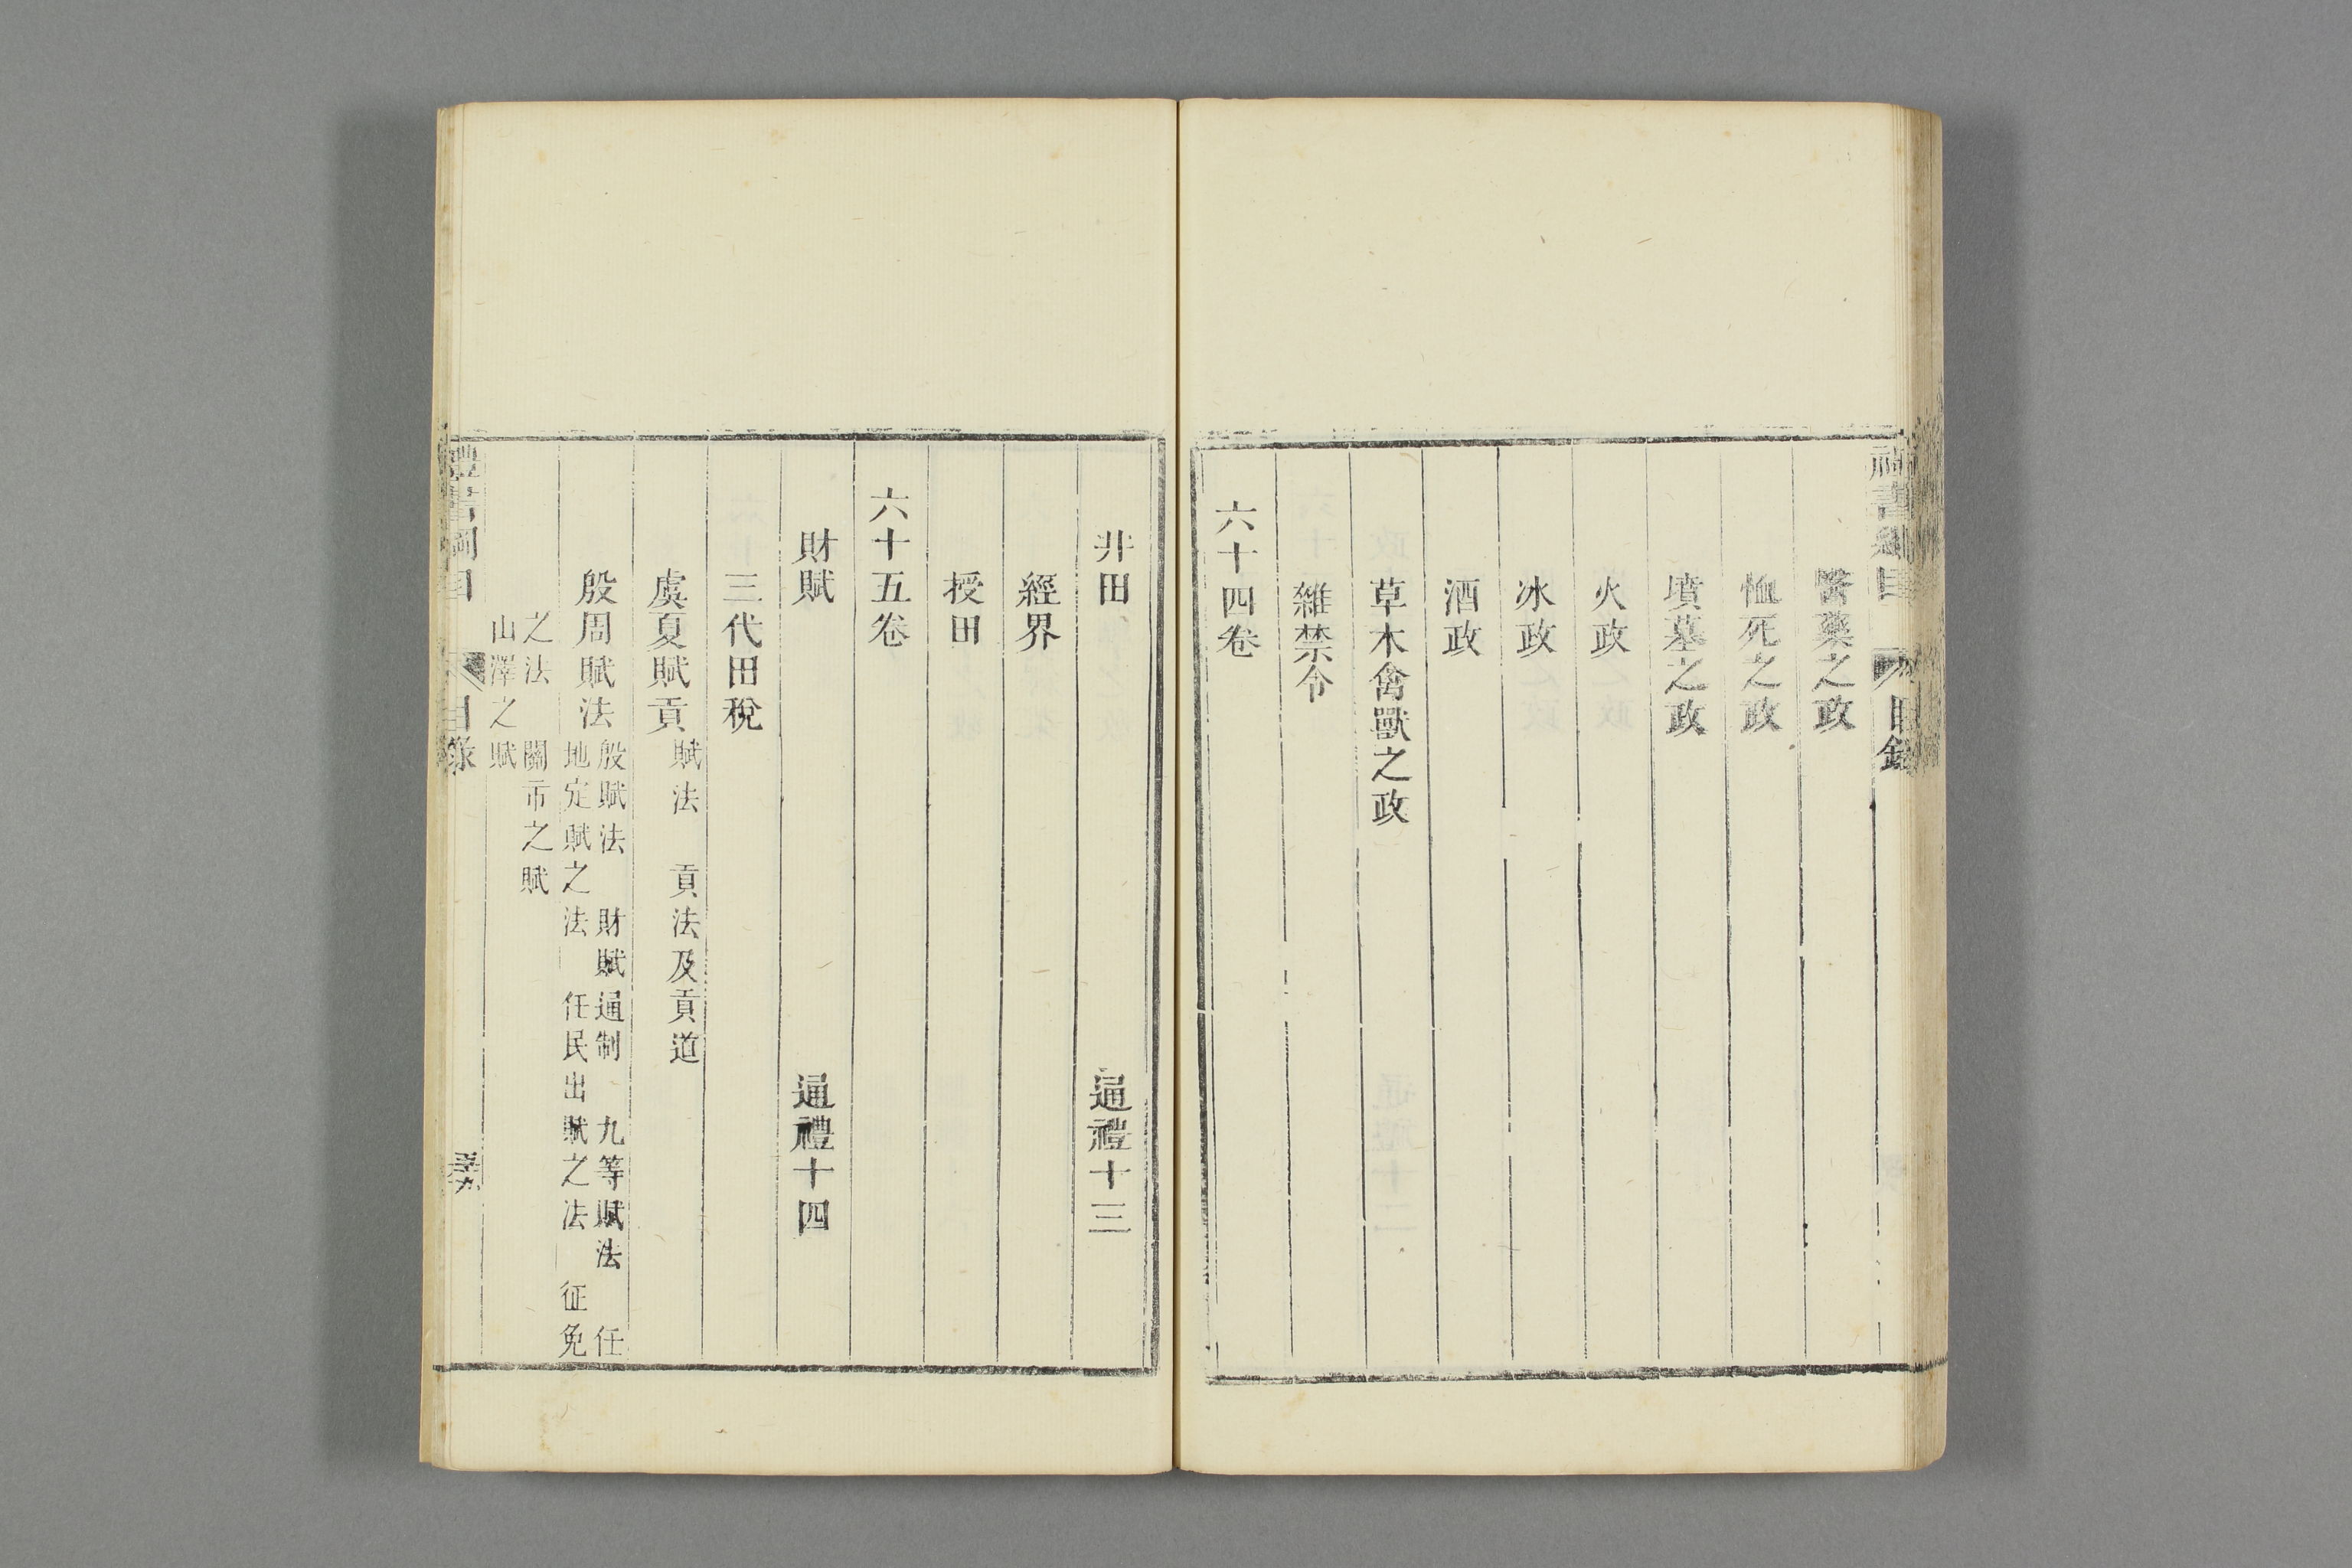 禮書綱目 目錄
醫藥之政
恤死之政
墳墓之政
火政
冰政
酒政
草木禽獸之政
雜禁令
六十四卷
井田 通禮十三
經界
授田
六十五卷
財賦 通禮十四
三代田稅
虞夏賦貢 賦法 貢法及貢道
殷周賦法 殷賦法 財賦通制 九等賦法 任
地定賦之法 任民出賦之法 征免
之法 關市之賦
山澤之賦
禮書綱目 目錄